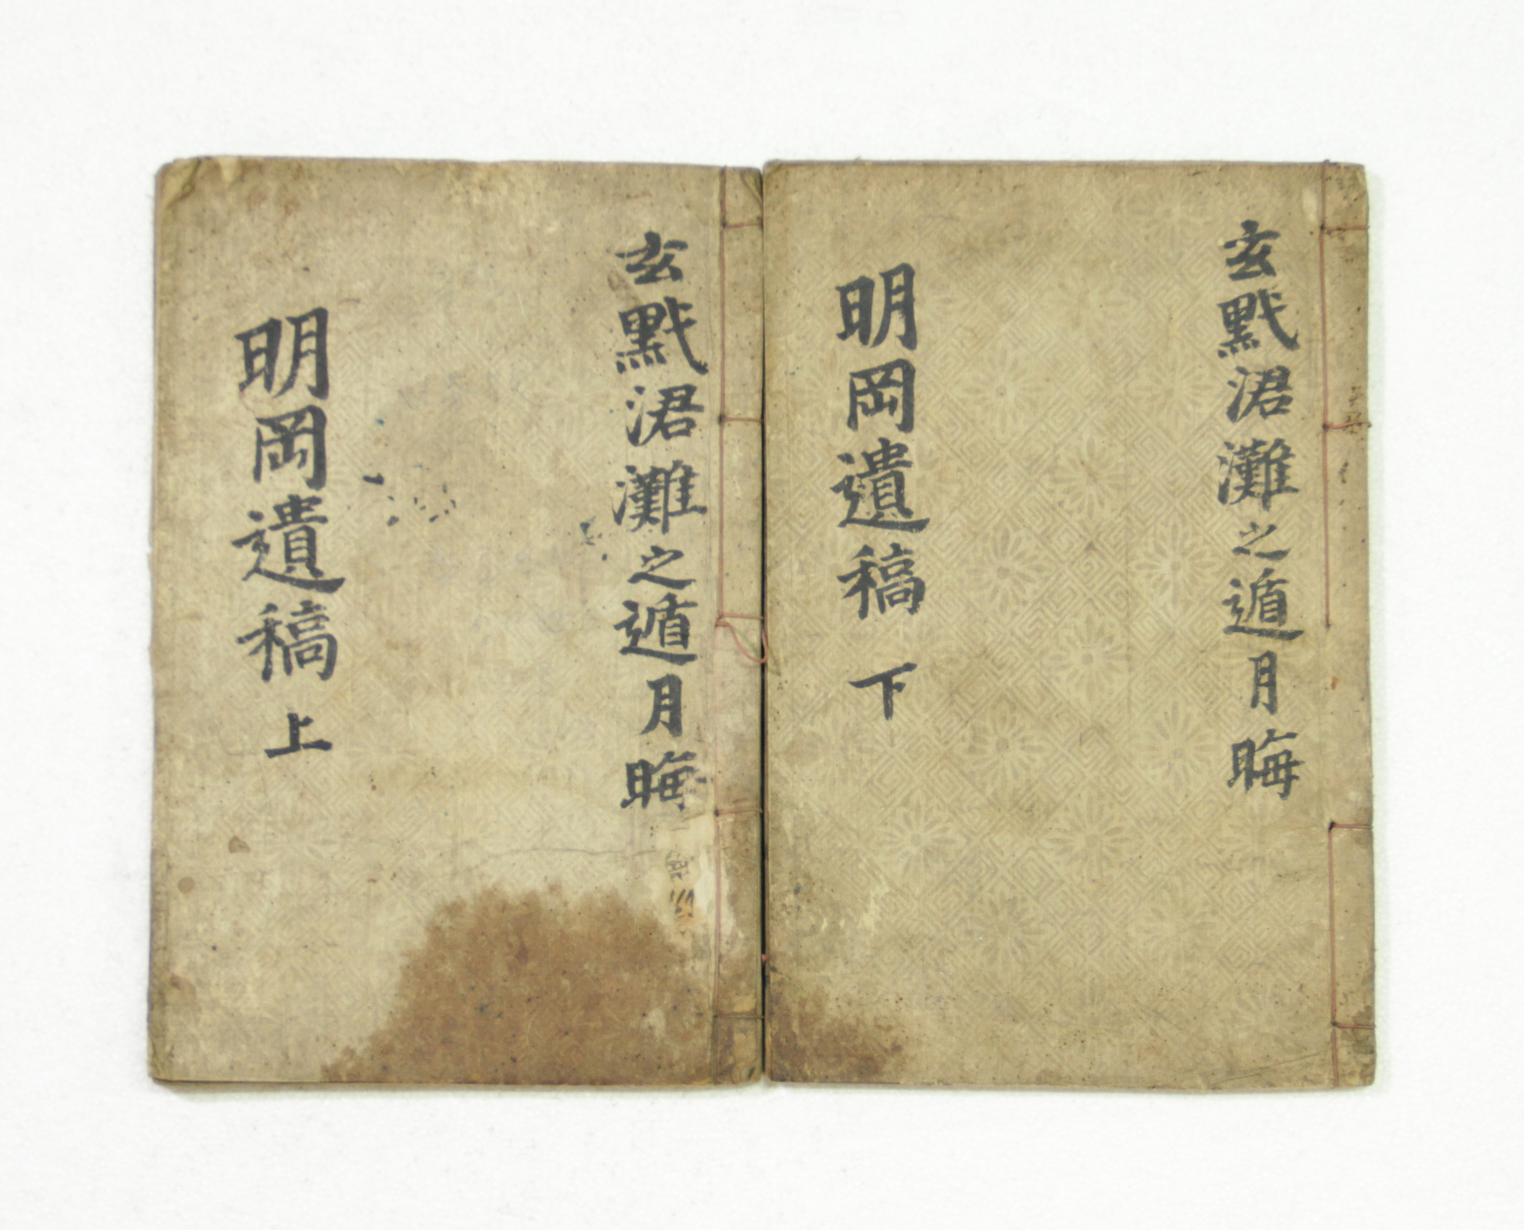 玄黓涒灘之遁月晦
明岡遺稿 下
玄黓涒灘之遁月晦
明岡遺稿 上